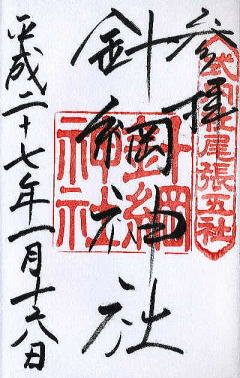 参拝
式内社尾張五社
針綱神社
針綱神社
平成二十七年一月十八日